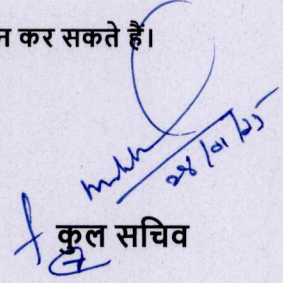 न कर सकते हैं।
28/01/25
कुल सचिव